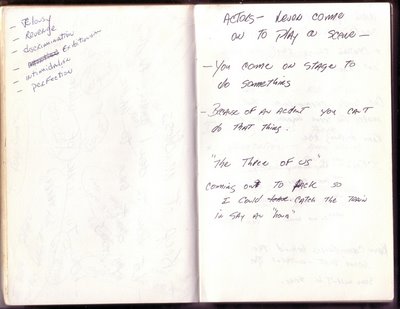 - Jelousy
- Revenge
- discrimination
- Exibitionism
- intimidation
- perfection
ACTORS - Never come
on to Play a scene -
- You come on STAGE TO
do something
- Because of an accident you can't
do that thing.
"The Three of us"
coming out to pack so
I could catch the train
in say an "hour"